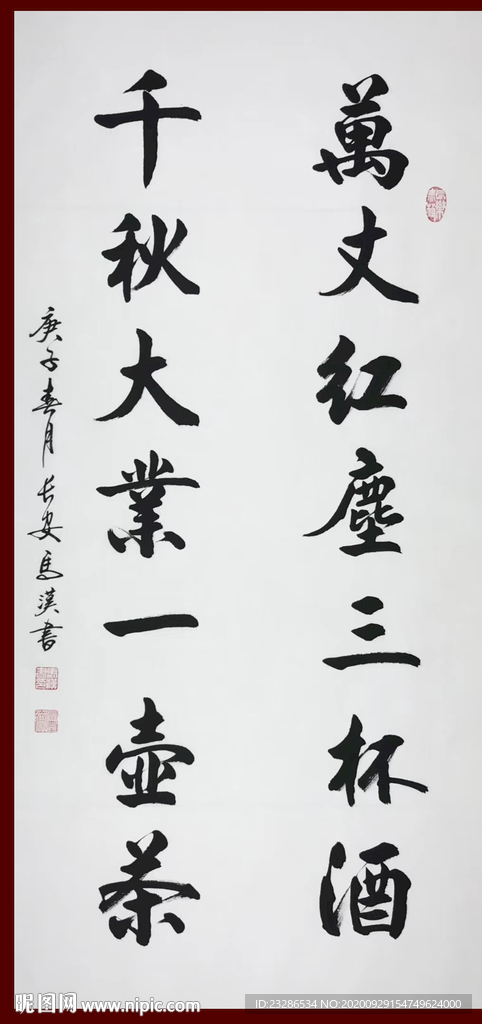 萬丈紅塵三杯酒
千秋大業一壺茶
庚子春月長安馬漢書
昵图网 www.nipic.com
ID:23286534 NO:20200929154749624000